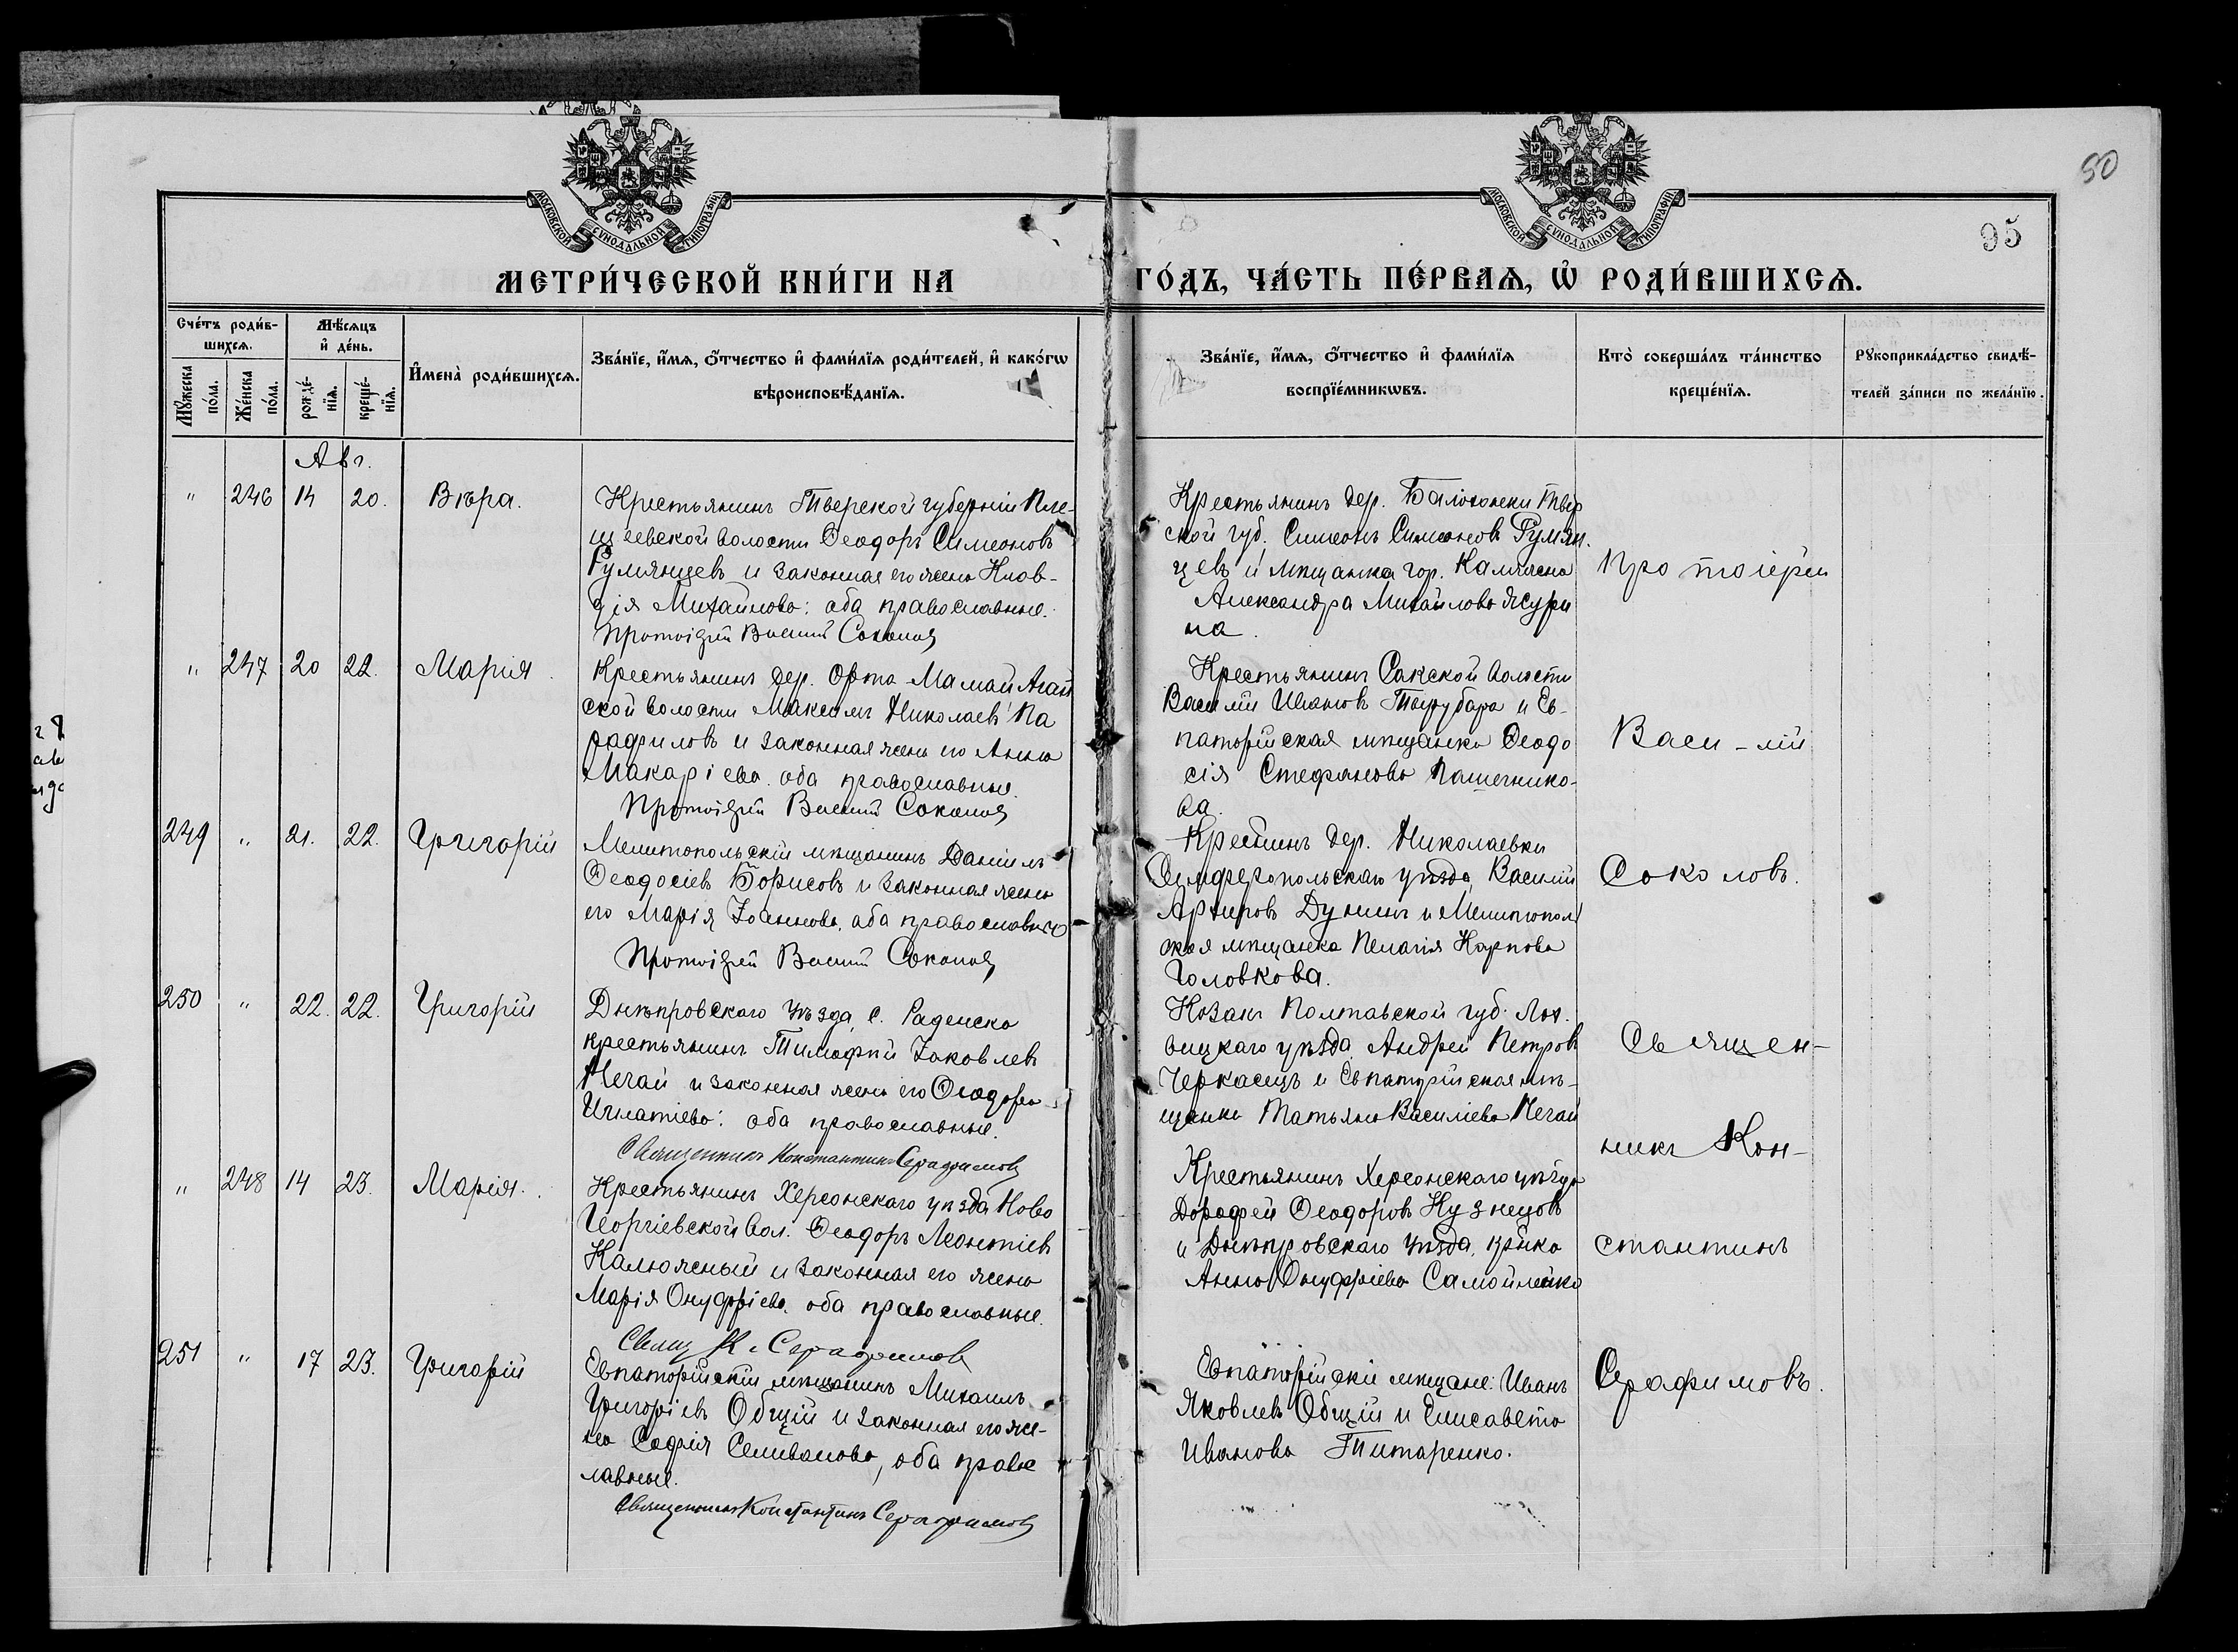 50
95
МОСКОВСКОЙ СУНОДАЛЬНОЙ ТИПОГРАФІИ
МОСКОВСКОЙ СУНОДАЛЬНОЙ ТИПОГРАФІИ
МЕТРИ́ЧЕСКОЙ КНИ́ГИ НА ГО́ДЪ, ЧА́СТЬ ПЕ́РВАѦ, Ѡ҆ РОДИ́ВШИХСѦ.
Сче́тъ роди́вшихсѧ.
Мꙋ́жеска по́ла.
Же́нска по́ла.
Мѣ́сѧцъ и҆ де́нь.
рожде́нїѧ.
креще́нїѧ.
И҆мена̀ роди́вшихсѧ.
Зва́нїе, и҆́мѧ, ѻ҆́тчество и҆ фами́лїѧ роди́телей, и҆ како́гѡ
вѣроисповѣ́данїѧ.
Зва́нїе, и҆́мѧ, ѻ҆́тчество и҆ фами́лїѧ
воспрїе́мникѡвъ.
Кто̀ соверша́лъ та́инство
креще́нїѧ.
Рꙋкоприкла́дство свидѣ́-
телей за́писи по жела́нїю.
Авг.
" 246 14 20. Вѣра.
Крестьянинъ Тверской губерніи Пле-
щеевской волости Ѳеодоръ Симеоновъ
Румянцевъ и законная его жена Клав-
дія Михайлова: оба православные.
Протоіерей Василій Соколовъ
Крестьянинъ дер. Твер
ской губ. Симеонъ Симеоновъ Румян-
цевъ и мѣщанка гор.
Александра Михайлова
на.
Протоіерей
" 247 20 22. Марія.
Крестьянинъ дер. Орта-Мамай Агай
ской волости Максимъ Николаевъ Па
рафиловъ и законная жена его Анна
Макаріева оба православные.
Протоіерей Василій Соколовъ
Крестьянинъ Сакской волости
Василій Ивановъ и Ев-
паторійская мѣщанка Ѳеодо
сія Стефанова Пашечнико-
ва.
Васи-лій
249 " 21. 22. Григорій
Мелитопольскій мѣщанинъ Даніилъ
Ѳеодосіевъ Борисовъ и законная жена
его Марія Іоаннова, оба православные
Протоіерей Василій Соколовъ
Крестьинъ дер. Николаевки
Симферопольскаго уѣзда, Василій
Дунинъ и Мелитополь
ская мѣщанка Пелагія Карпова
Головкова.
Соколовъ.
250 " 22. 22. Григорій
Днѣпровскаго уѣзда, с. Раденска
крестьянинъ Тимофей Іаковлевъ
Нечай и законная жена его Ѳеодора
Игнатіева: оба православные.
Священникъ Константинъ Серафимовъ
Козакъ Полтавской губ. Лох-
вицкаго уѣзда Андрей Петровъ
Черкасецъ и Евпаторійская мѣ-
щанка Татьяна Василіева Нечай
Священ-
никъ Кон-
" 248 14 23. Марія.
Крестьянинъ Херсонскаго уѣзда Ново
Георгіевской вол. Ѳеодоръ Леонтіевъ
Калюжный и законная его жена
Марія Онуфріева, оба православные.
Свящ. К. Серафимовъ
Крестьянинъ Херсонскаго уѣзда
Дорофей Ѳеодоровъ Кузнецовъ
и Днѣпровскаго уѣзда,
Анна Онуфріева Самойленко
стантинъ
251 " 17 23. Григорій
Евпаторійскій мѣщанинъ Михаилъ
Григоріевъ Общій и законная его же-
на Софія Селиванова, оба правос
лавные.
Священникъ Константинъ Серафимовъ
Евпаторійскіе мѣщане: Иванъ
Яковлевъ Общій и Елисавета
Иванова Титаренко.
Серафимовъ.